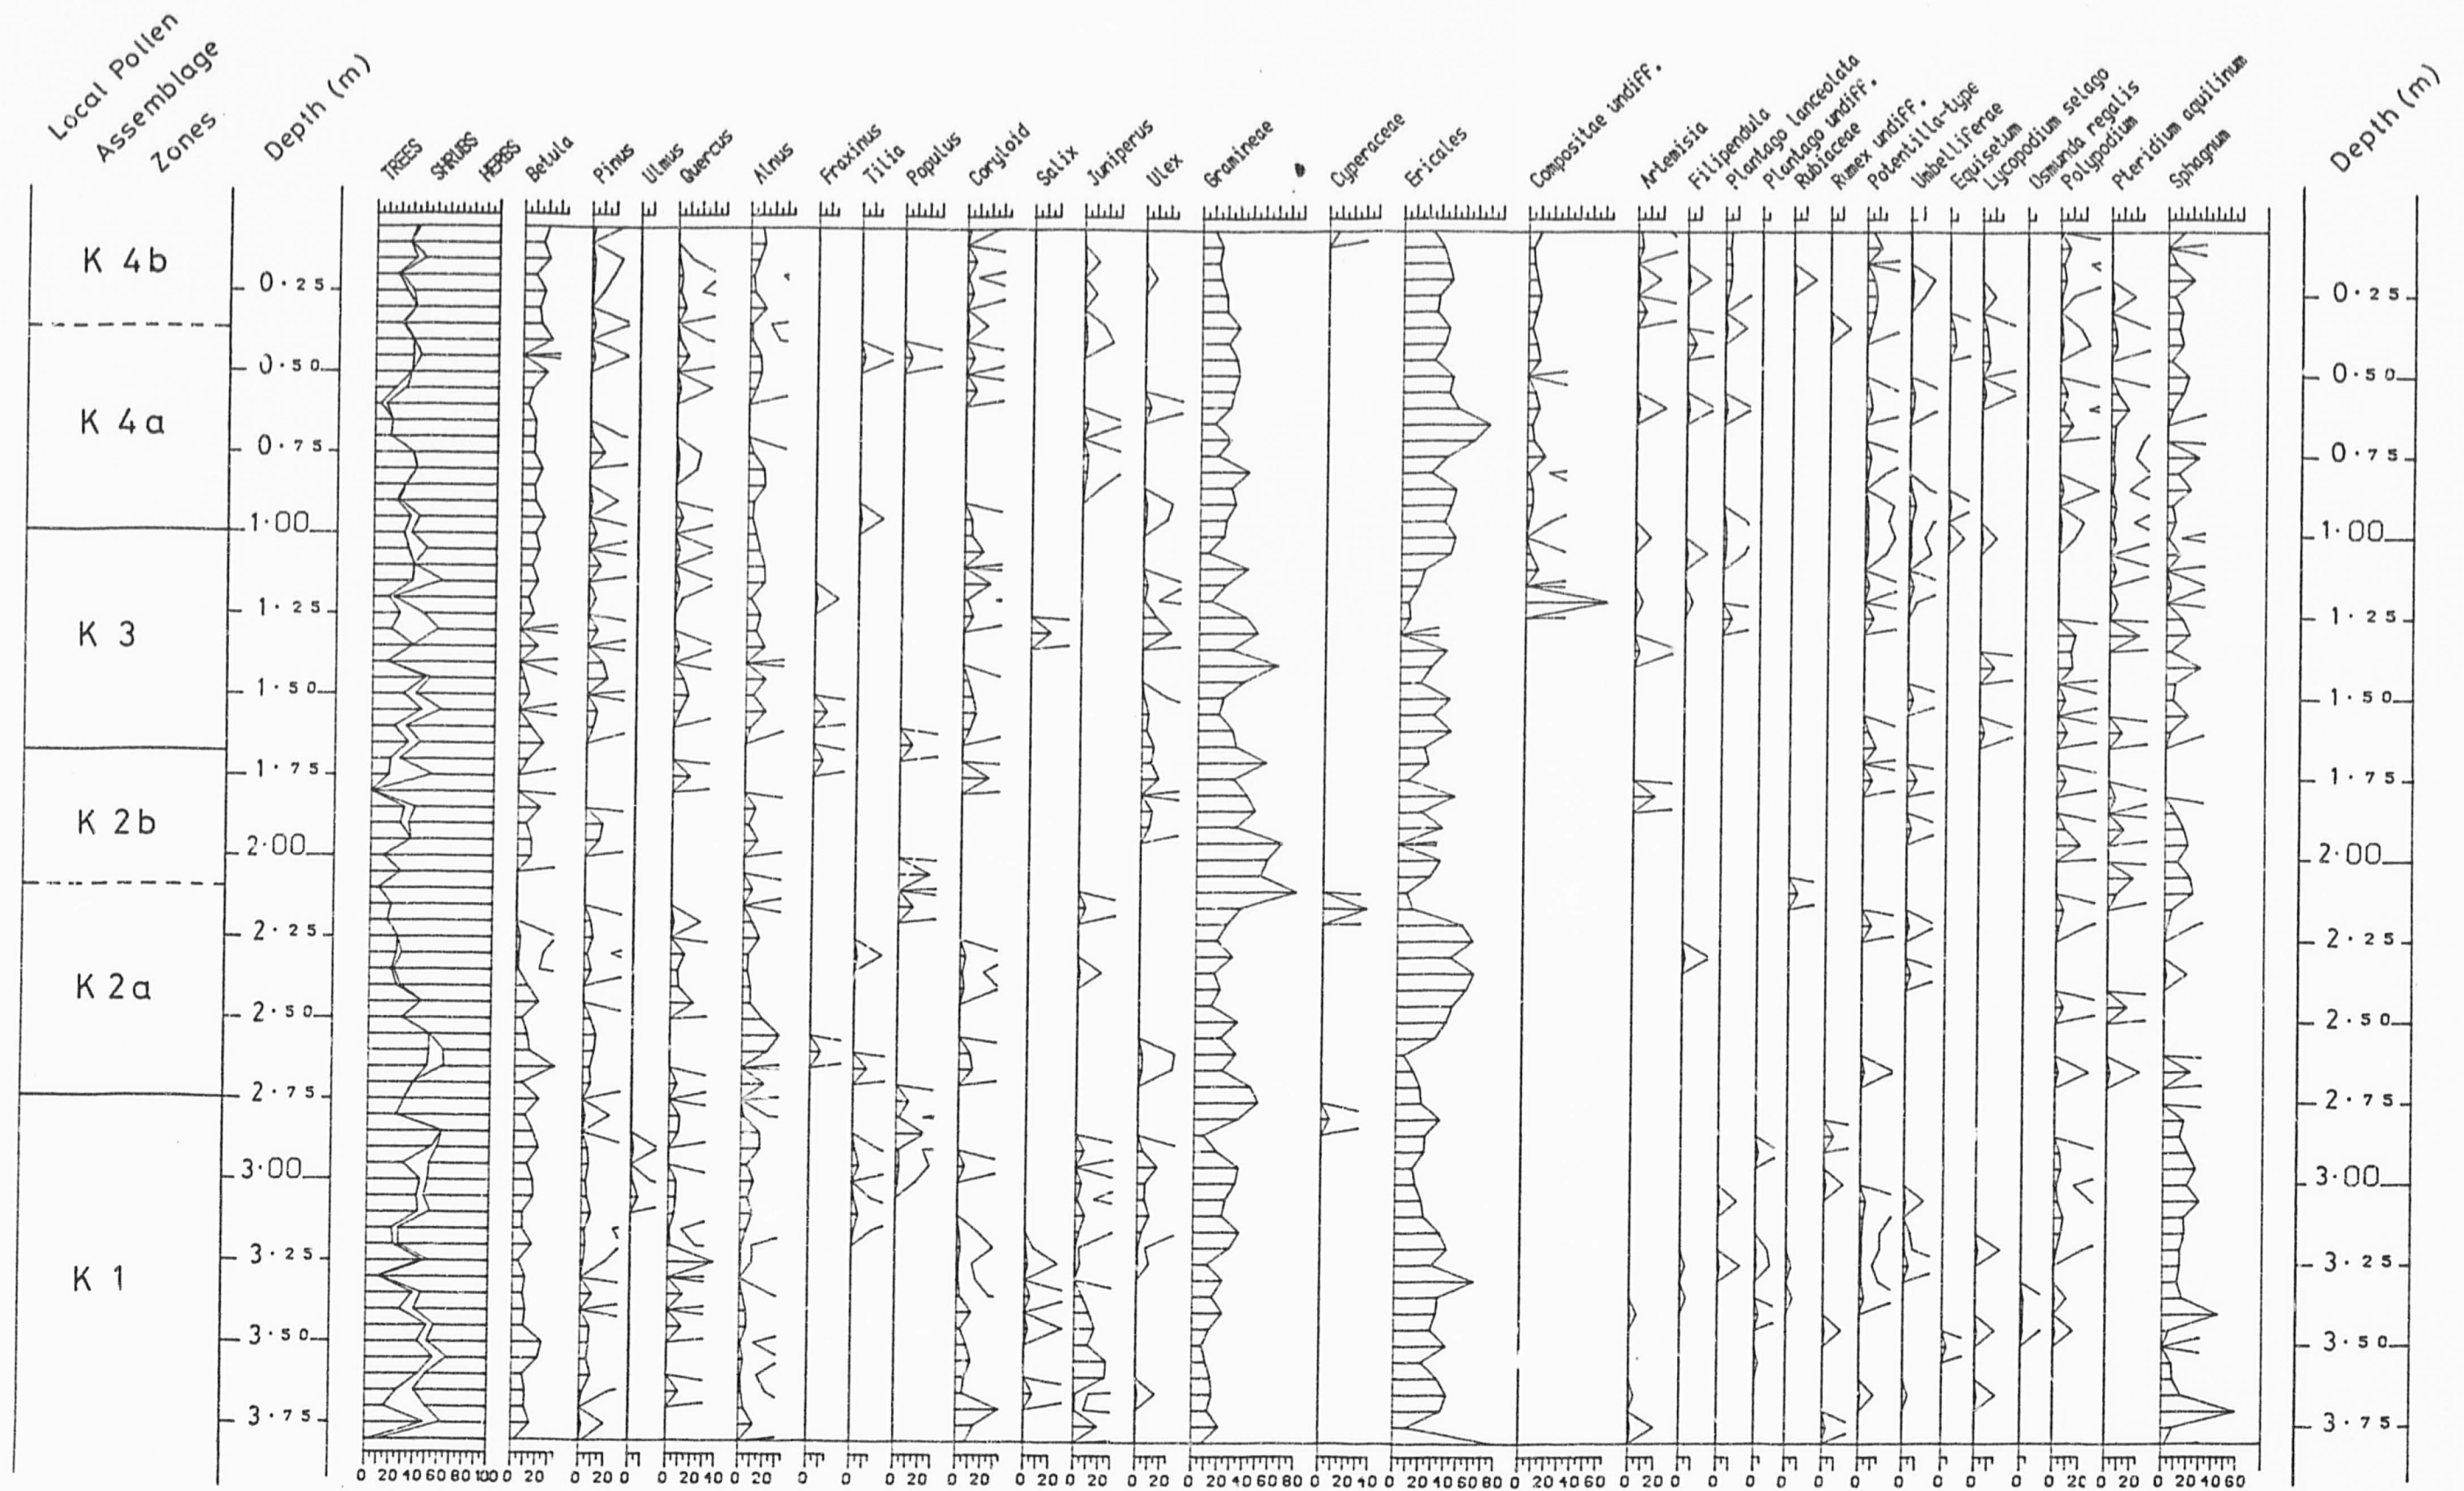 Local Pollen
Assemblage
Zones
Depth (m)
TREES
SHRUBS
HERBS
Betula
Pinus
Ulmus
Quercus
Alnus
Fraxinus
Tilia
Populus
Coryloid
Salix
Juniperus
Ulex
Gramineae
Cyperaceae
Ericales
Compositae undiff.
Artemisia
Filipendula
Plantago lanceolata
Plantago undiff.
Rubiaceae
Rumex undiff.
Potentilla-type
Umbelliferae
Equisetum
Lycopodium selago
Osmunda regalis
Polypodium
Pteridium aquilinum
Sphagnum
Depth (m)
K 4b
0·25 0·25
0·50 0·50
K 4a
0·75 0·75
1·00 1·00
1·25 1·25
K 3
1·50 1·50
1·75 1·75
K 2b
2·00 2·00
2·25 2·25
K 2a
2·50 2·50
2·75 2·75
3·00 3·00
3·25 3·25
K 1
3·50 3·50
3·75 3·75
0 20 40 60 80 100 0 20 0 20 0 0 20 40 0 20 0 0 0 20 0 20 0 20 0 20 0 20 0 20 40 60 80 0 20 40 0 20 40 60 80 0 20 40 60 0 20 0 0 0 0 0 0 0 0 0 0 0 20 0 20 0 20 40 60